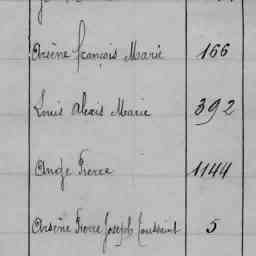 Arsène François Marie 166
Louis Alexis Marie 392
Ange Pierre 1144
Arsène Pierre Joseph Toussaint 5